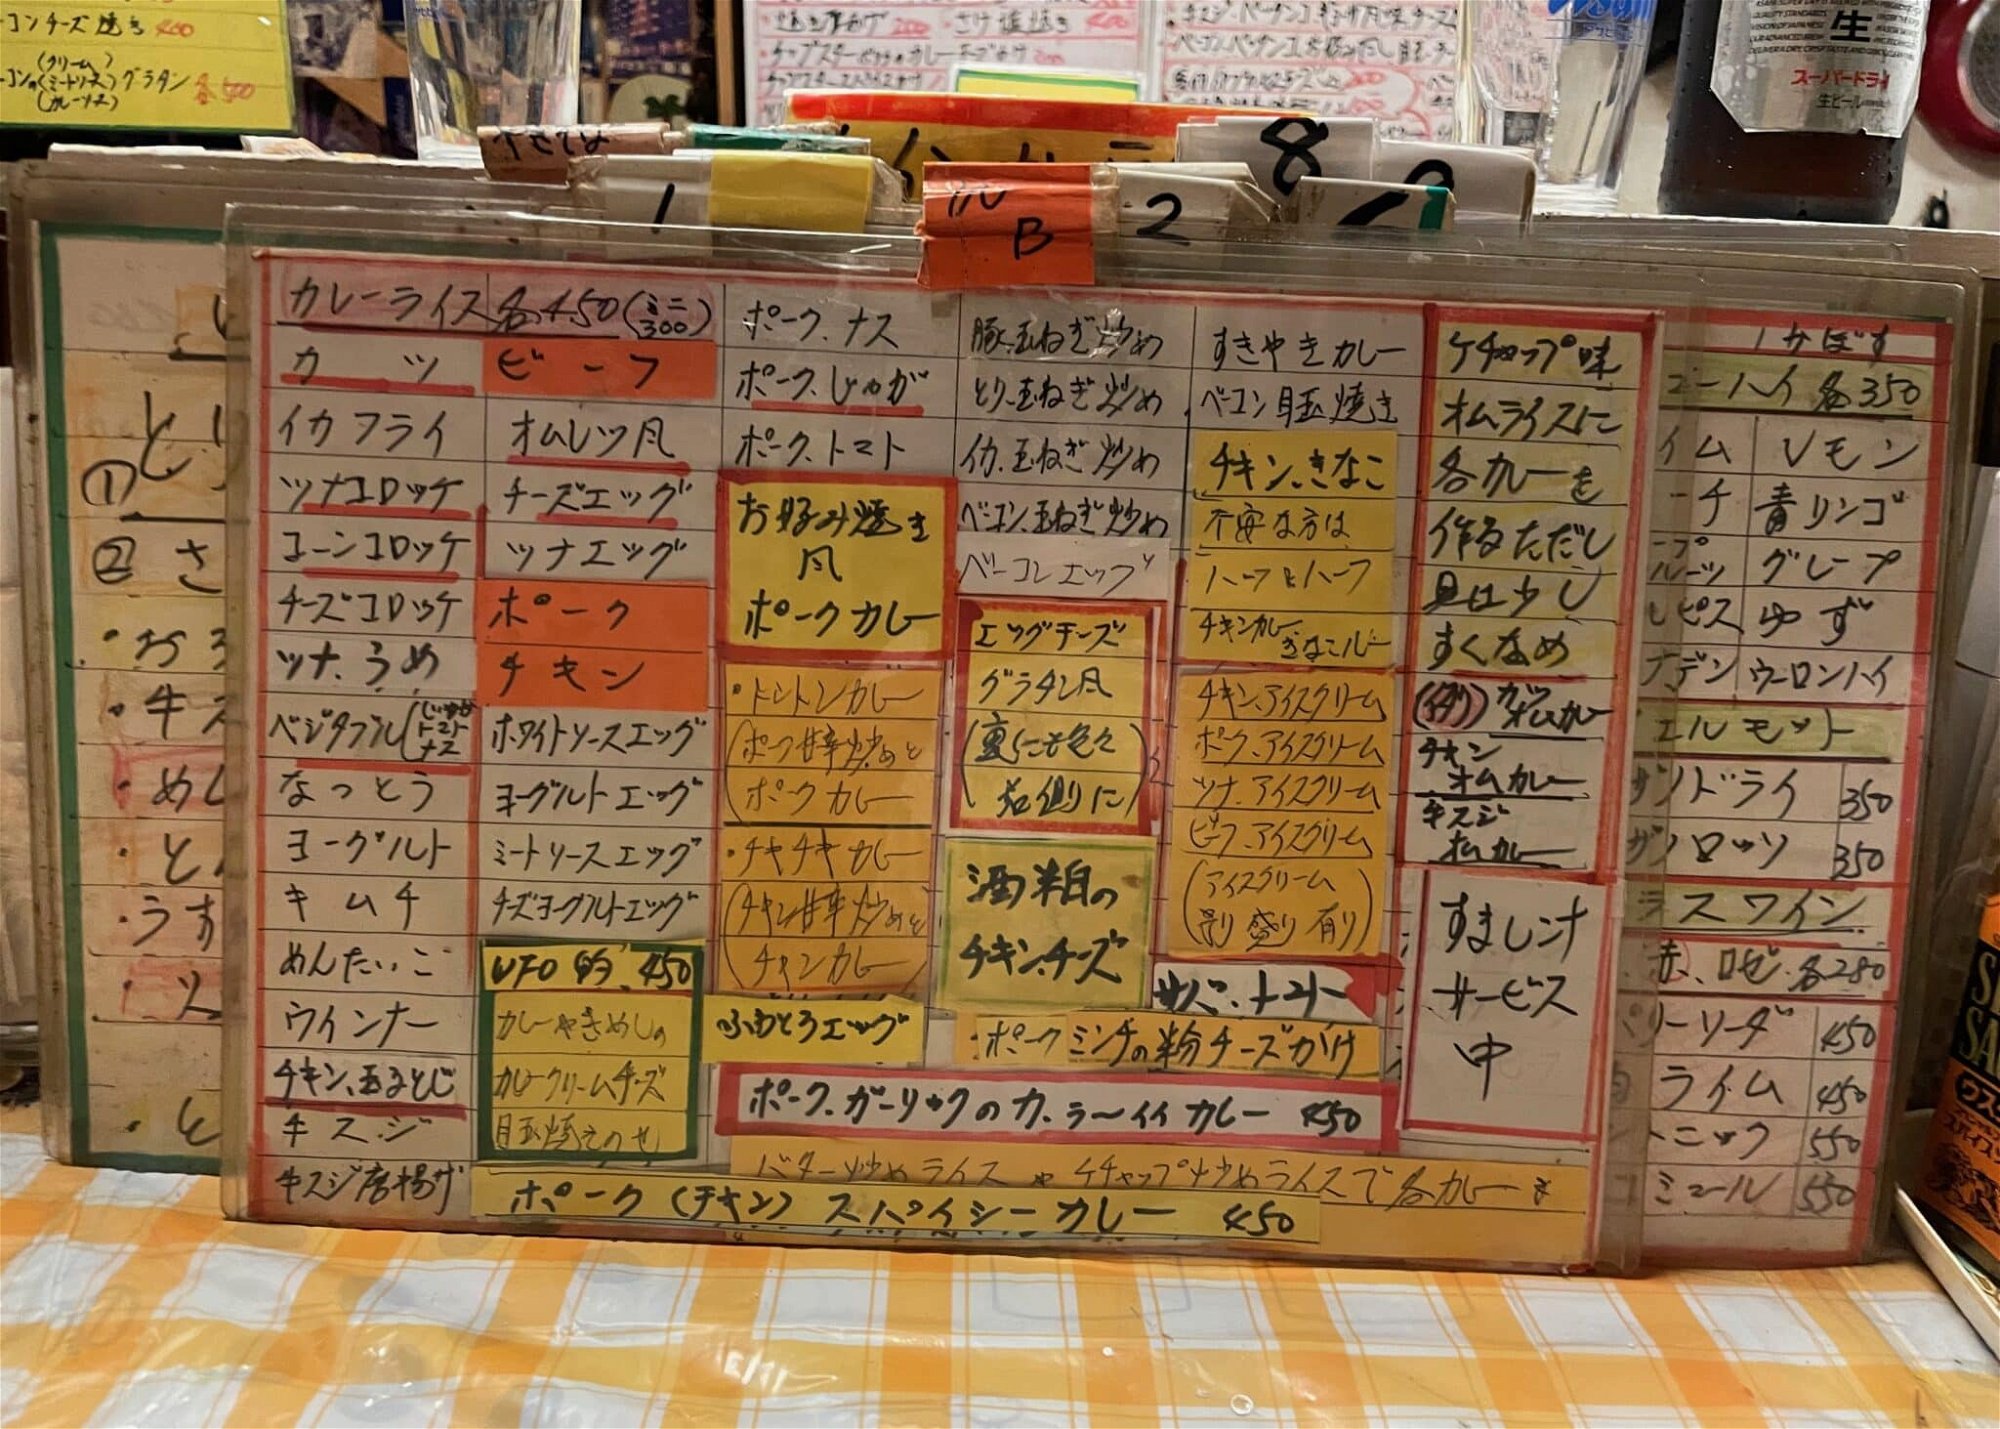 コンチーズ焼き 400
(クリーム)
(ミートソース)グラタン 各500
(カレーソース)
生
スーパードライ
生ビール
1
ル
B
2
8
カレーライス 各450(ミニ300)
カツ
イカフライ
ツナコロッケ
コーンコロッケ
チーズコロッケ
ツナ、うめ
ベジタブル(じゃがトマトナス
なっとう
ヨーグルト
キムチ
めんたいこ
ウインナー
チキン、玉子とじ
牛スジ
牛スジ唐揚げ
ビーフ
オムレツ風
チーズエッグ
ツナエッグ
ポーク
チキン
ホワイトソースエッグ
ヨーグルトエッグ
ミートソースエッグ
チーズヨーグルトエッグ
UFO 的 450
カレーやきめしの
カレークリームチーズ
目玉焼きのせ
ポーク、ナス
ポーク、じゃが
ポーク、トマト
お好み焼き
風
ポークカレー
・トントンカレー
(ポーク甘辛炒めと
ポークカレー)
・チキチキカレー
(チキン甘辛炒めと
チキンカレー)
ふわとろエッグ
豚、玉ねぎ炒め
とり、玉ねぎ炒め
イカ、玉ねぎ炒め
ベーコン、玉ねぎ炒め
ベーコンエッグ
エッグチーズ
グラタン風
(裏にも色々
右側に)
酒粕の
チキン、チーズ
すきやきカレー
ベーコン目玉焼き
チキン、きなこ
不安な方は
ハーフとハーフ
チキンカレー
きなこルー
チキン、アイスクリーム
ポーク、アイスクリーム
ツナ、アイスクリーム
ビーフ、アイスクリーム
(アイスクリーム
別盛り有り)
サバ、トマト
ポークミンチの粉チーズがけ
ポーク、ガーリックのカ、ラ〜イイカレー 450
バター炒めライスやケチャップ炒めライスで各カレーも
ポーク(チキン)スパイシーカレー 450
ケチャップ味
オムライスに
各カレーを
作るただし
具は少し
すくなめ
(例)カツオムカレー
チキン
オムカレー
牛スジ
オムカレー
すまし汁
サービス
中
かぼす
ーハイ 各350
イム レモン
ーチ 青リンゴ
グレープ
ルピス ゆず
ナデン ウーロンハイ
エルモット
ガンドライ 350
ガンロッソ 350
ラスワイン
赤、ロゼ 各280
リーリーダ 450
ライム 450
トニック 550
ミュール 550
①
②